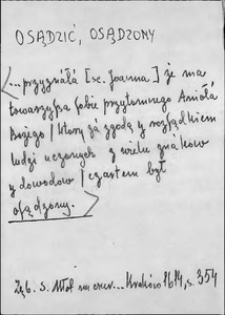 OSĄDZIĆ, OSĄDZONY
<... przyznáłá [sc. Joanna] że ma
towarzyszá sobie przytomnego Aniołá
Bożego / ktory zá zgodą y rozsądkiem
ludzi uczonych z wielu znákow
y dowodow / czartem był
osądzony.>
Ząb. S. Młot na czar... Kraków 1614, s. 354